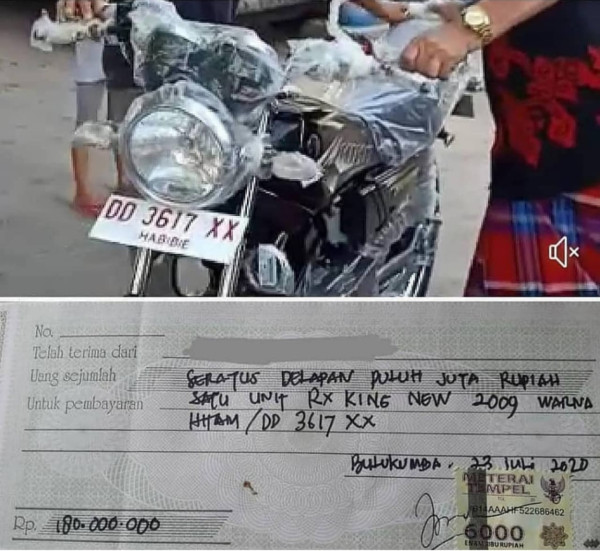 DD 3617 XX
HABIBIE
No.
Telah terima dari
Uang sejumlah SERATUS DELAPAN PULUH JUTA RUPIAH
Untuk pembayaran SATU UNIT RX KING NEW 2009 WARNA
HITAM / DD 3617 XX
BULUKUMBA, 23 JULI 2020
METERAI
TEMPEL
522686462
6000
ENAM RIBU RUPIAH
Rp. 180.000.000